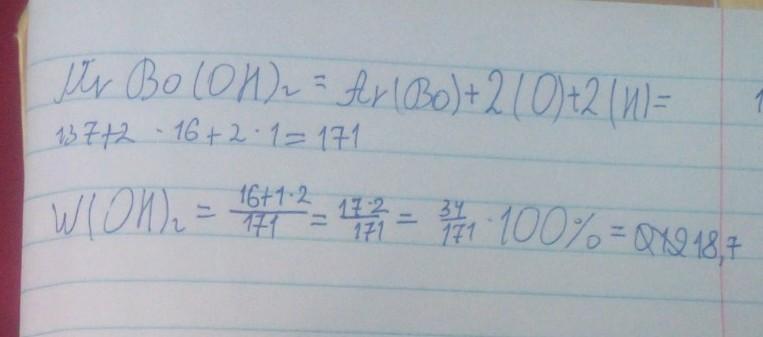 Mr Ba(OH)₂ = Ar(Ba)+2(O)+2(H)=
137+2 · 16+2·1=171
W(OH)₂ = \frac{16+1·2}{171} = \frac{17·2}{171} = \frac{34}{171} · 100% = 18,7